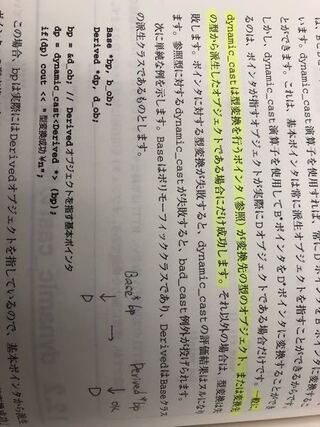 います。dynamic_cast演算子を使用すれば、常にD
とができます。これは、基本ポインタは常に派生オブジェクトを指すことができるからです。
しかし、dynamic_cast演算子を使用してB*ポインタをD*ポインタに変換することができ
るのは、ポインタが指すオブジェクトが実際にDオブジェクトである場合だけです。一般に
dynamic_castは型変換を行うポインタ(参照)が変換先の型のオブジェクト、または変換先
の型から派生したオブジェクトである場合にだけ成功します。それ以外の場合は、型変換は失
敗します。ポインタに対する型変換が失敗すると、dynamic_castの評価結果はヌルになり
ます。参照型に対するdynamic_castが失敗すると、bad_cast例外が投げられます。
次に単純な例を示します。Baseはポリモーフィッククラスであり、DerivedはBaseクラス
の派生クラスであるものとします。
Base *bp, b_ob;
Derived *dp, d_ob;
Base *bp Derived *bp
↓ → ↓ ok
D D
bp = &d_ob // Derivedオブジェクトを指す基本ポインタ
dp = dynamic_cast<Derived *> (bp);
if(dp) cout << "型変換成功¥n";
この場合、bpは実際にはDerivedオブジェクトを指しているので、基本ポインタから派生